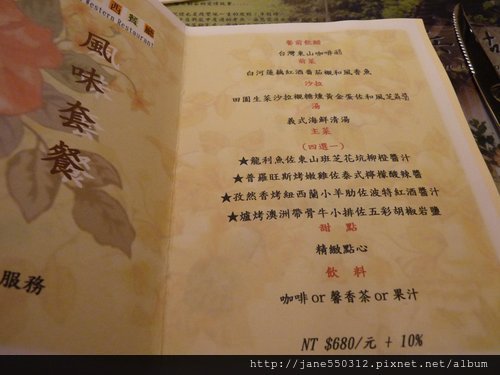 西餐廳
Western Restaurant
風味套餐
服務
餐前飲醋
台灣東山咖啡醋
前菜
白河蓮藕紅酒番茄襯和風香魚
沙拉
田園生菜沙拉襯糖燻黃金蛋佐和風芝麻醬
湯
義式海鮮清湯
主菜
(四選一)
★龍利魚佐東山班芝花坑柳橙醬汁
★普羅旺斯烤嫩雞佐泰式檸檬酸辣醬
★孜然香烤紐西蘭小羊肋佐波特紅酒醬汁
★爐烤澳洲帶骨牛小排佐五彩胡椒岩鹽
甜 點
精緻點心
飲 料
咖啡 or 馨香茶 or 果汁
NT $680/元 + 10%
http://jane550312.pixnet.net/album